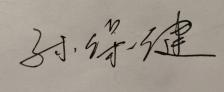 孙保健